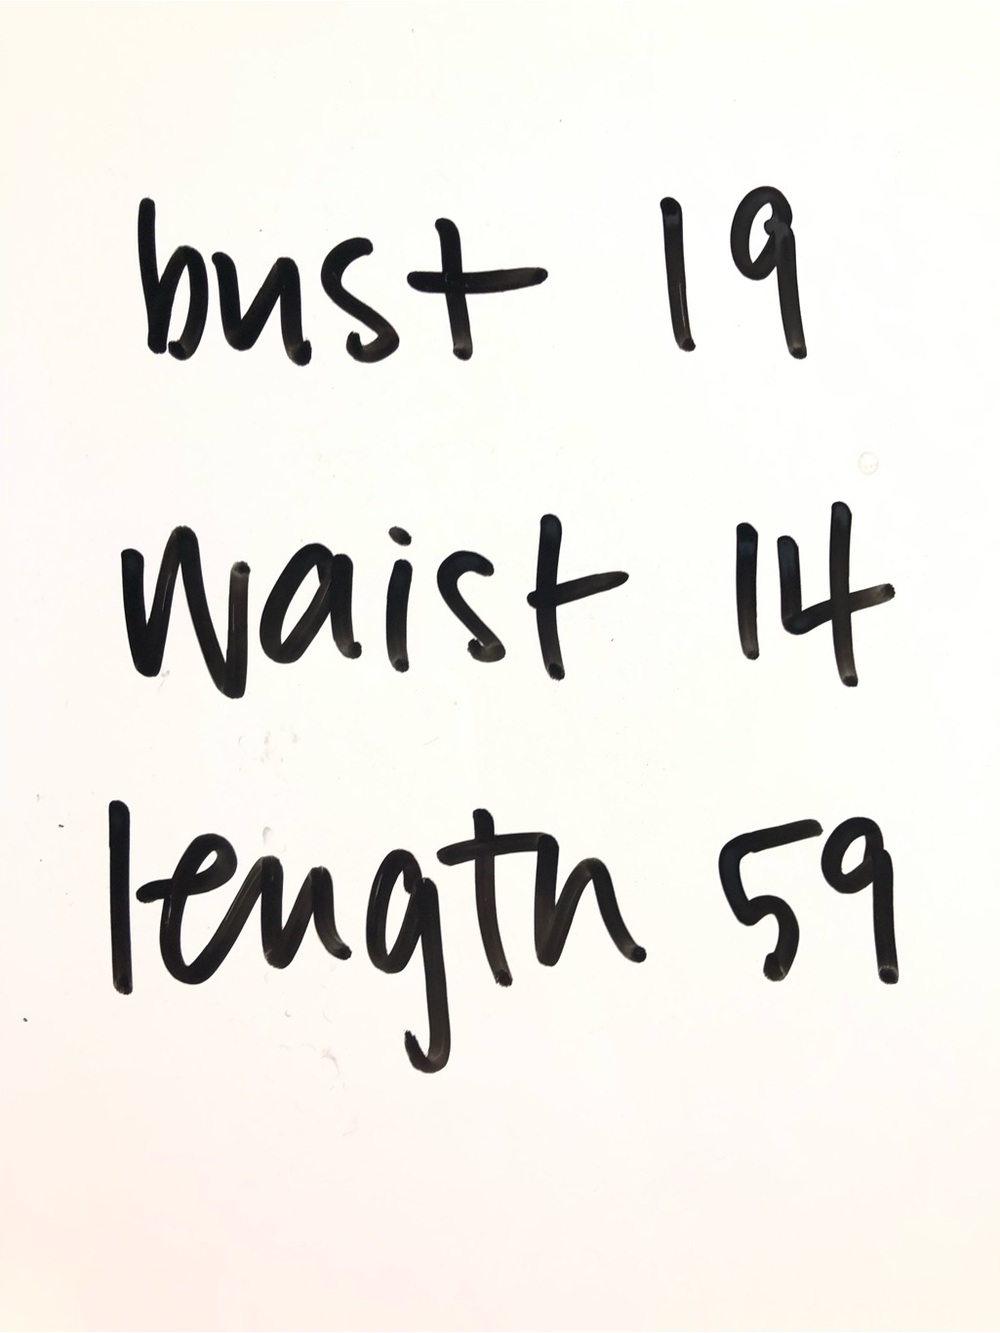 bust 19
waist 14
length 59